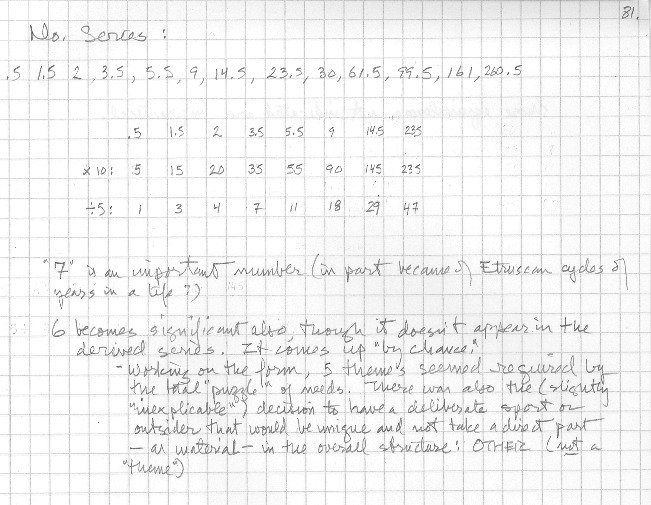 81.
No. Series :
.5 1.5 2 , 3.5 , 5.5 , 9 , 14.5 , 23.5 , 30 , 61.5 , 99.5 , 161 , 260.5
.5 1.5 2 3.5 5.5 9 14.5 23.5
x 10 : 5 15 20 35 55 90 145 235
÷5 : 1 3 4 7 11 18 29 47
"7" is an important number (in part because of Etruscan cycles of
years in a life ?)
6 becomes significant also, though it doesn't appear in the
derived series. It comes up "by chance."
- Working on the form, 5 theme's seemed required by
the total "puzzle" of needs. There was also the (slightly
"inexplicable") decision to have a deliberate sport or
outsider that would be unique and not take a direct part
— as material — in the overall structure : OTHER (not a
"theme")